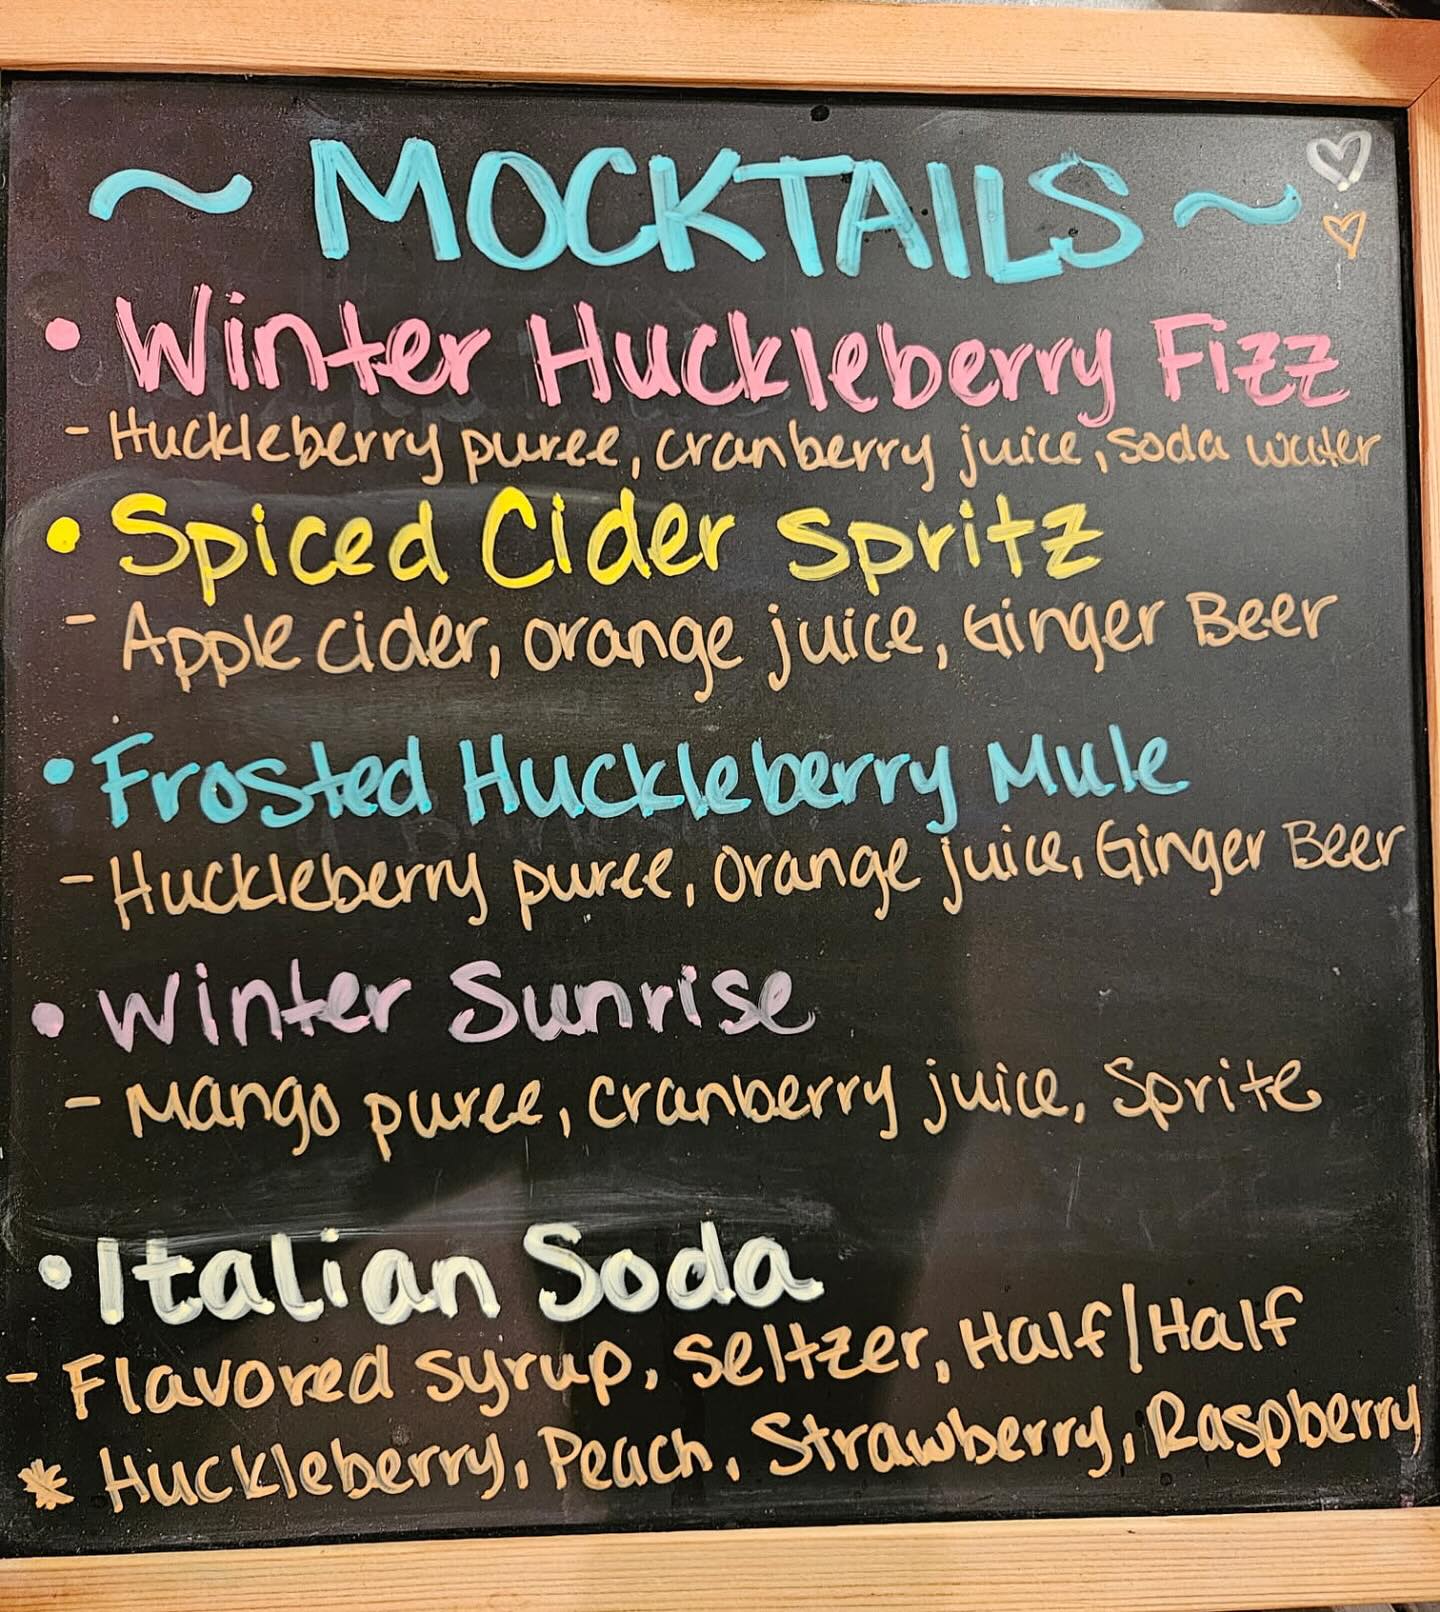 ~ MOCKTAILS ~
• Winter Huckleberry Fizz
- Huckleberry puree, cranberry juice, soda water
• Spiced Cider Spritz
- Apple cider, orange juice, Ginger Beer
• Frosted Huckleberry Mule
- Huckleberry puree, orange juice, Ginger Beer
• Winter Sunrise
- Mango puree, cranberry juice, Sprite
• Italian Soda
- Flavored syrup, seltzer, Half/Half
* Huckleberry, Peach, Strawberry, Raspberry